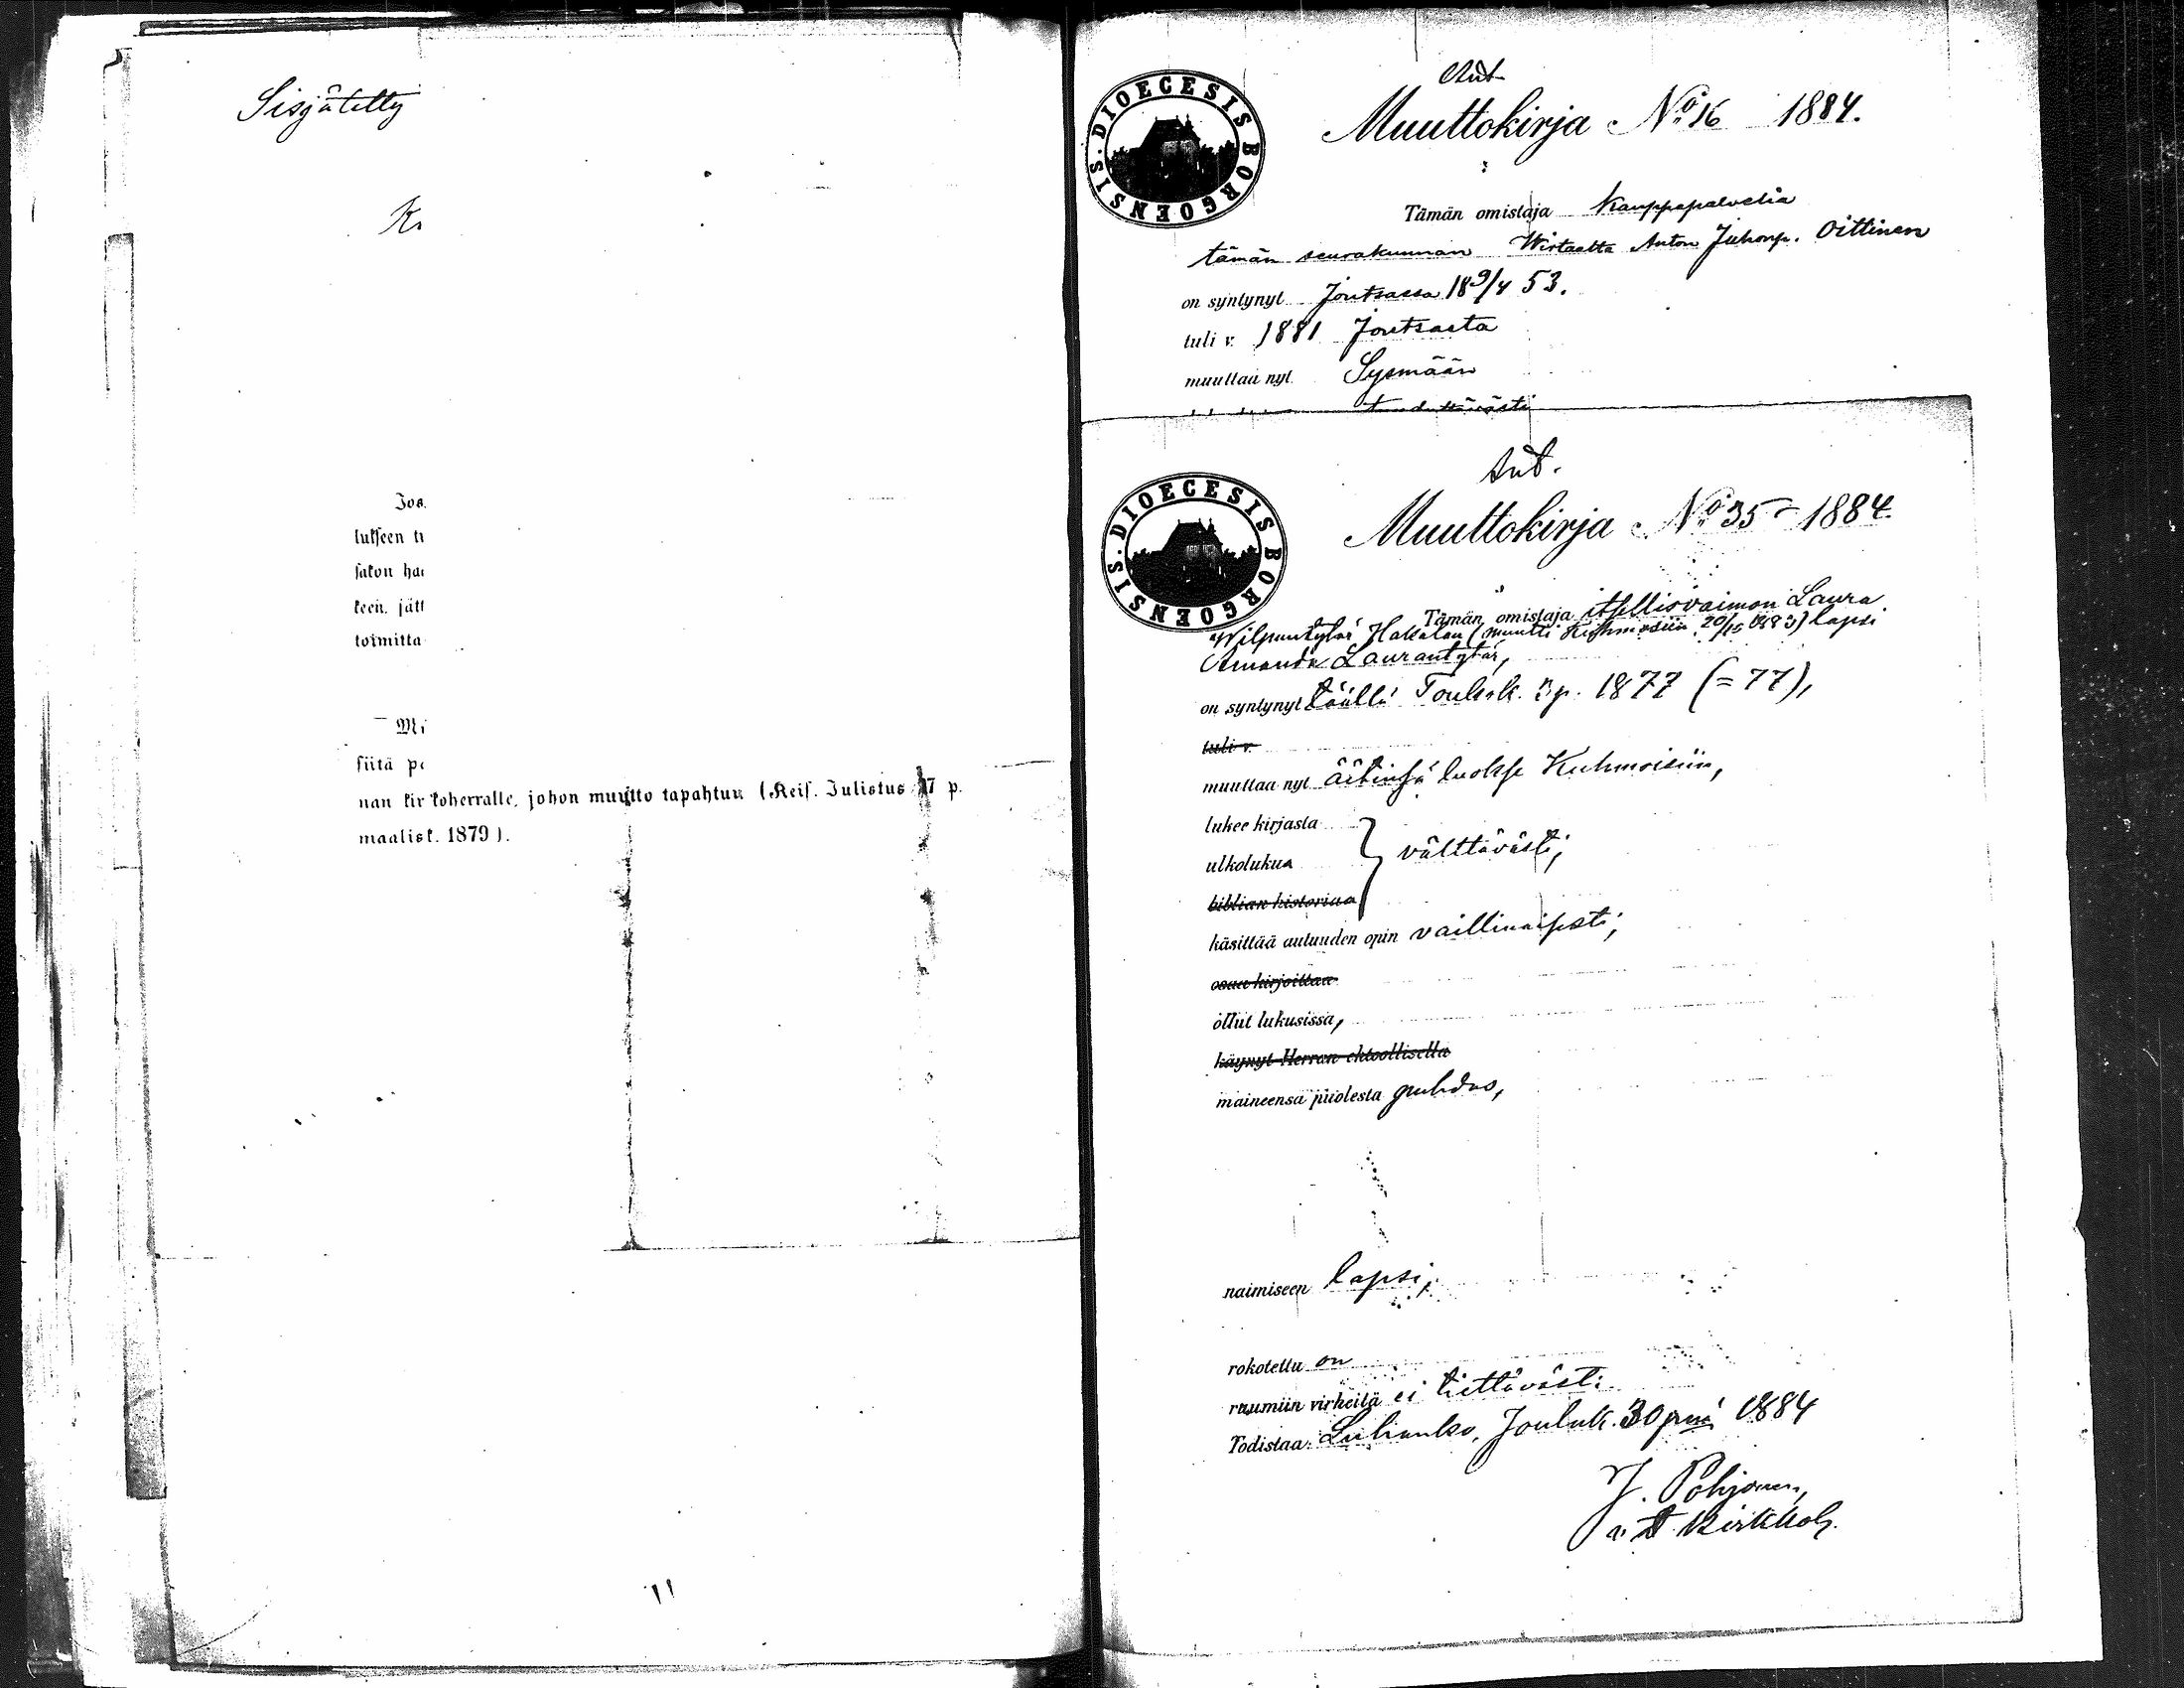 Sisjätetty
Jos
lukseen
sakon
keen, jätt
toimitta
siitä
nan kirkoherralle, johon muutto tapahtuu (Keis. Julistus 27 p.
maalisk. 1879).
DIOECESIS BORGOENSIS.
Muuttokirja No 16 1884.
Tämän omistaja Kauppapalvelia
tämän seurakunnan Wirtaalta Anton Juhonp. Oittinen
on syntynyt Joutsassa 18 9/4 53.
tuli v. 1881 Joutsasta
muuttaa nyt Sysmään
DIOECESIS BORGOENSIS.
Muuttokirja No 35 1884
Tämän omistaja itsellisvaimon Laura
(muutti Kuhmoisiin 20/10 1883) lapsi
Amanda Laurantytär,
on syntynyt täällä Toukok. 3 p. 1877 (= 77),
tuli v.
muuttaa nyt äitinsä luokse Kuhmoisiin,
lukee kirjasta
ulkolukua } välttävästi;
biblian historiaa
käsittää autuuden opin vaillinaisesti;
osaa kirjoittaa
ollut lukusissa,
käynyt Herran ehtoollisella
maineensa puolesta puhdas,
naimiseen lapsi,
rokotettu on
ruumiin virheitä ei tiettävästi.
Todistaa: Luhanko, Jouluk. 30 p:nä 1884
J. Pohjonen,
v. t. Kirkkoh.